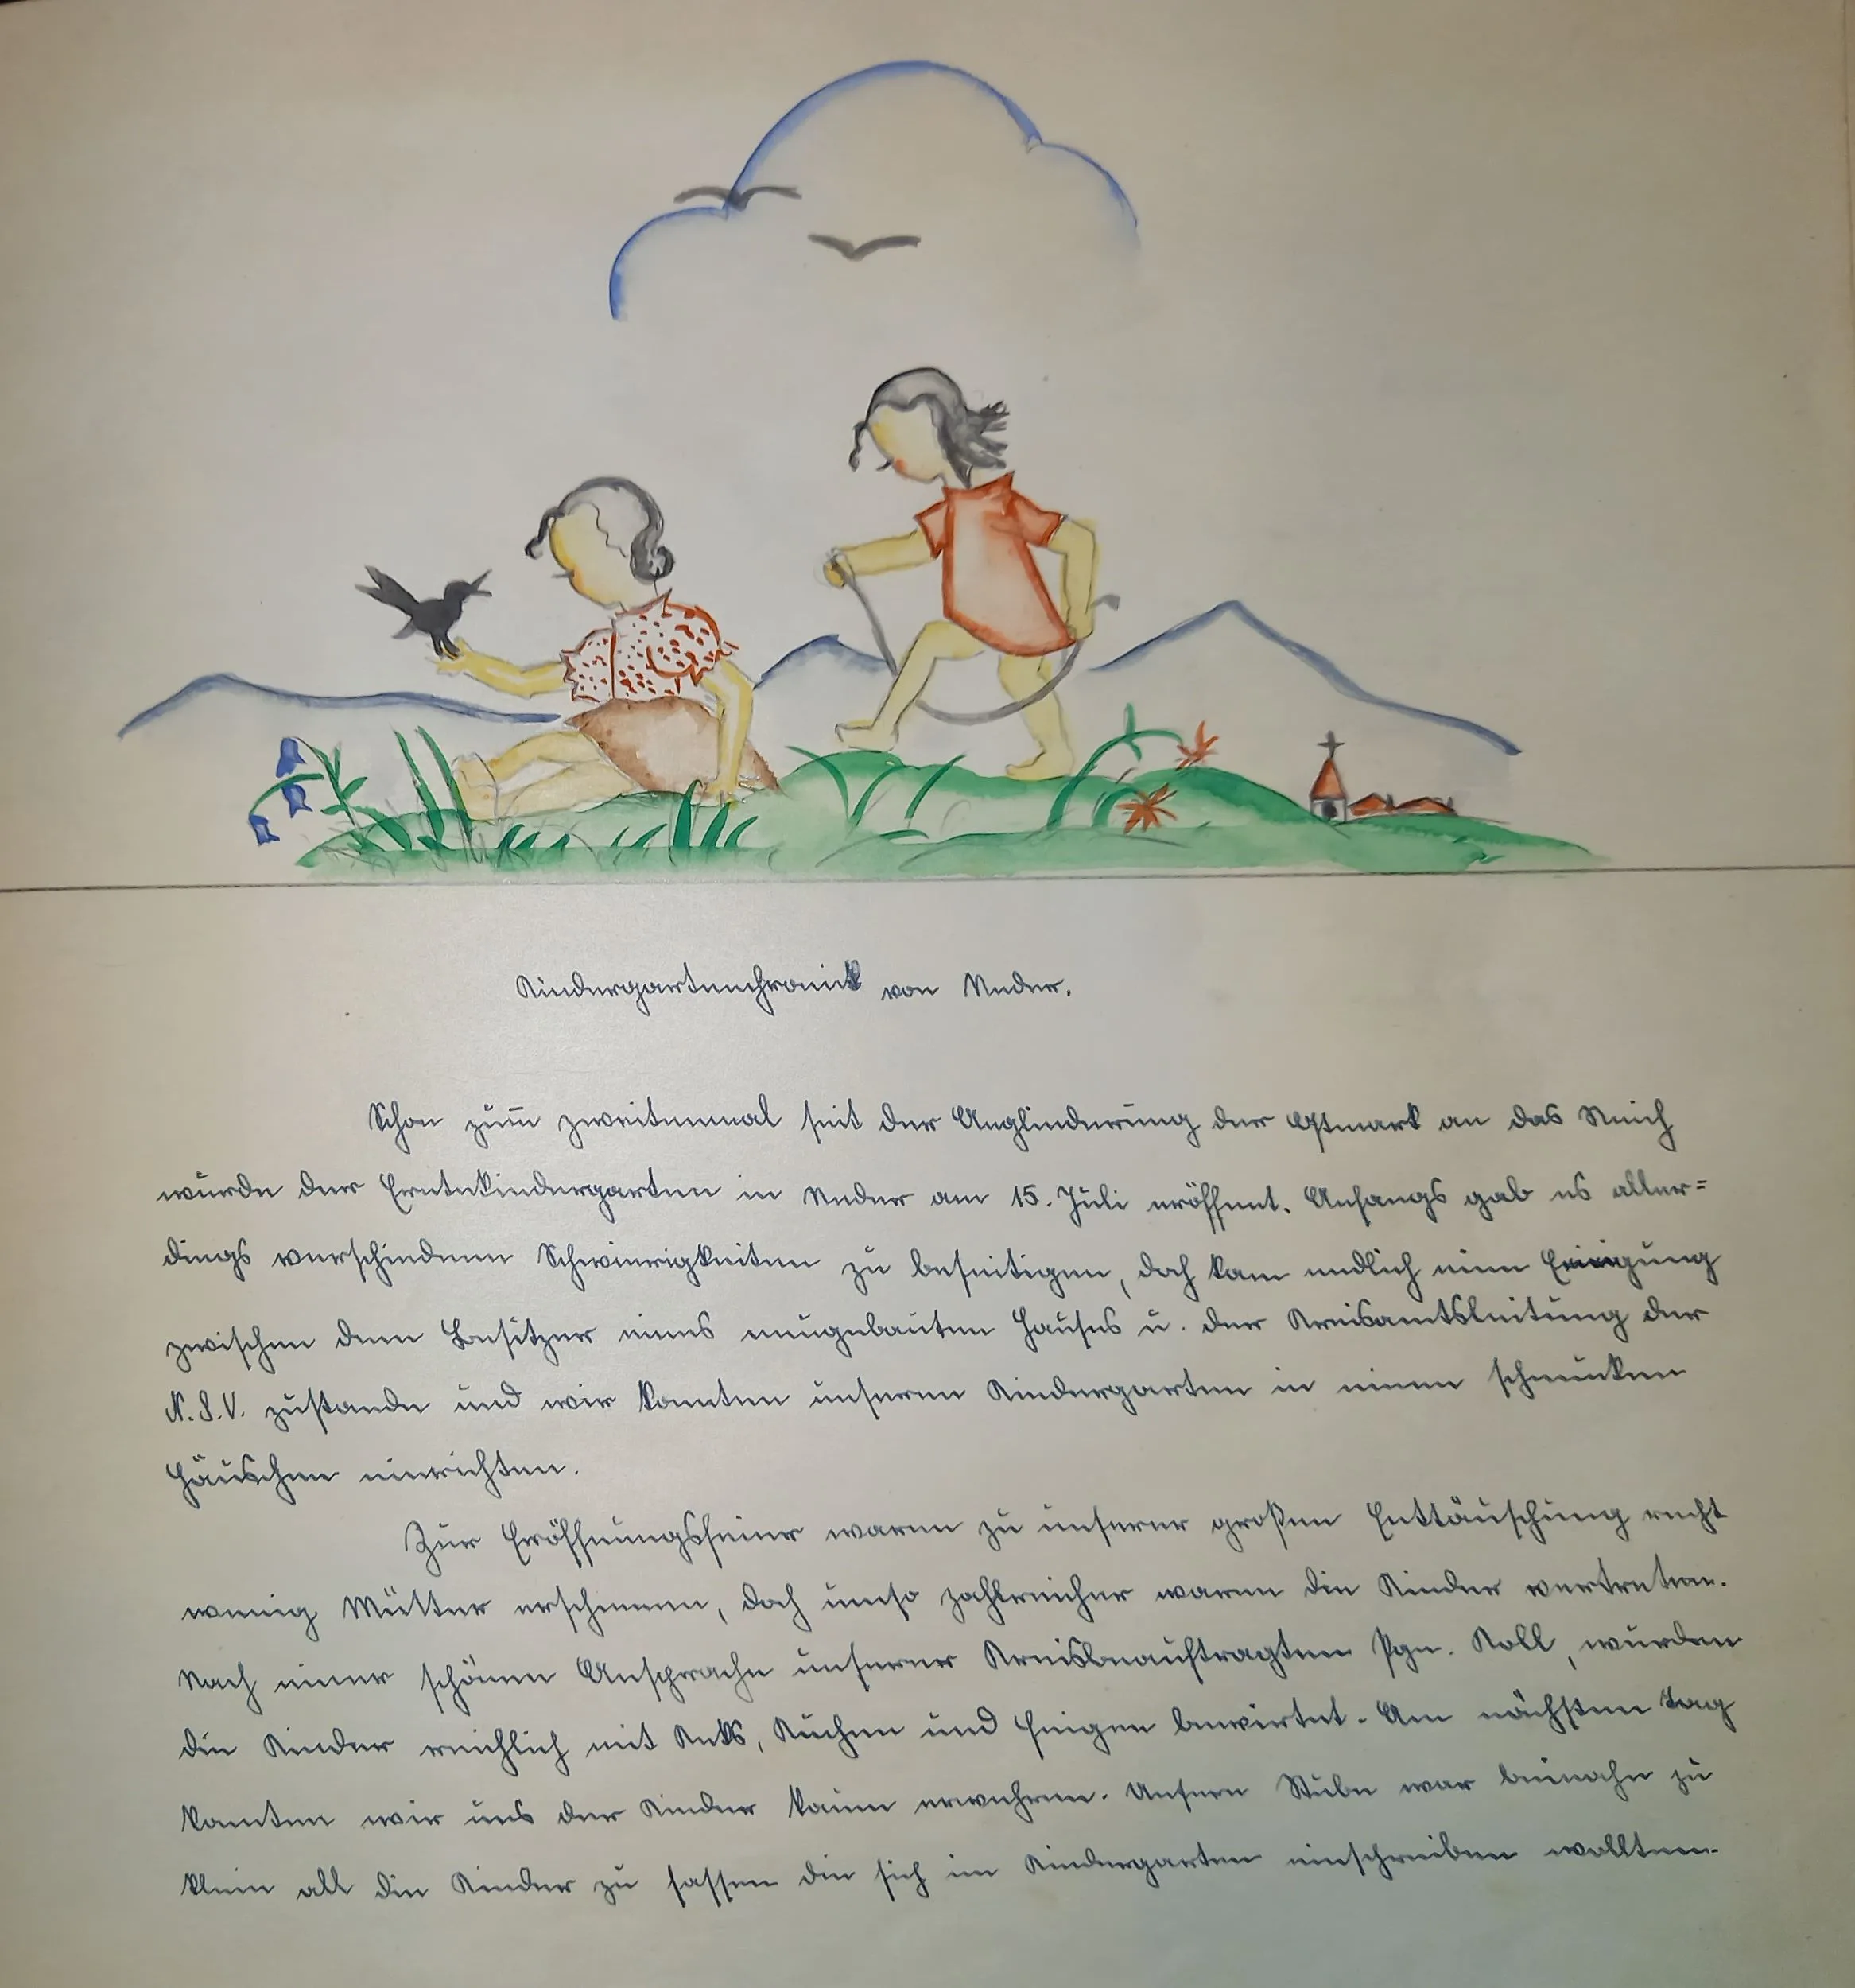 Kindergartenchronik von Neder.
Schon zum zweitenmal seit der Angliederung der Ostmark an das Reich
wurde der Erntekindergarten in Neder am 15. Juli eröffnet. Anfangs gab es aller=
dings verschiedene Schwierigkeiten zu beseitigen, doch kam endlich eine Einigung
zwischen dem Besitzer eines neugebauten Hauses u. der Kreisamtsleitung der
N.S.V. zustande und wir konnten unseren Kindergarten in einem schmucken
Häuschen einrichten.
Zur Eröffnungsfeier waren zu unserer großen Enttäuschung recht
wenig Mütter erschienen, doch umso zahlreicher waren die Kinder vertreten.
Nach einer schönen Ansprache unserer Kreisbeauftragten Pgn. Koll, wurden
die Kinder reichlich mit Keks, Kuchen und Feigen bewirtet. Am nächsten Tag
konnten wir uns der Kinder kaum erwehren. Unsere Stube war beinahe zu
klein all die Kinder zu fassen die sich im Kindergarten einschreiben wollten.